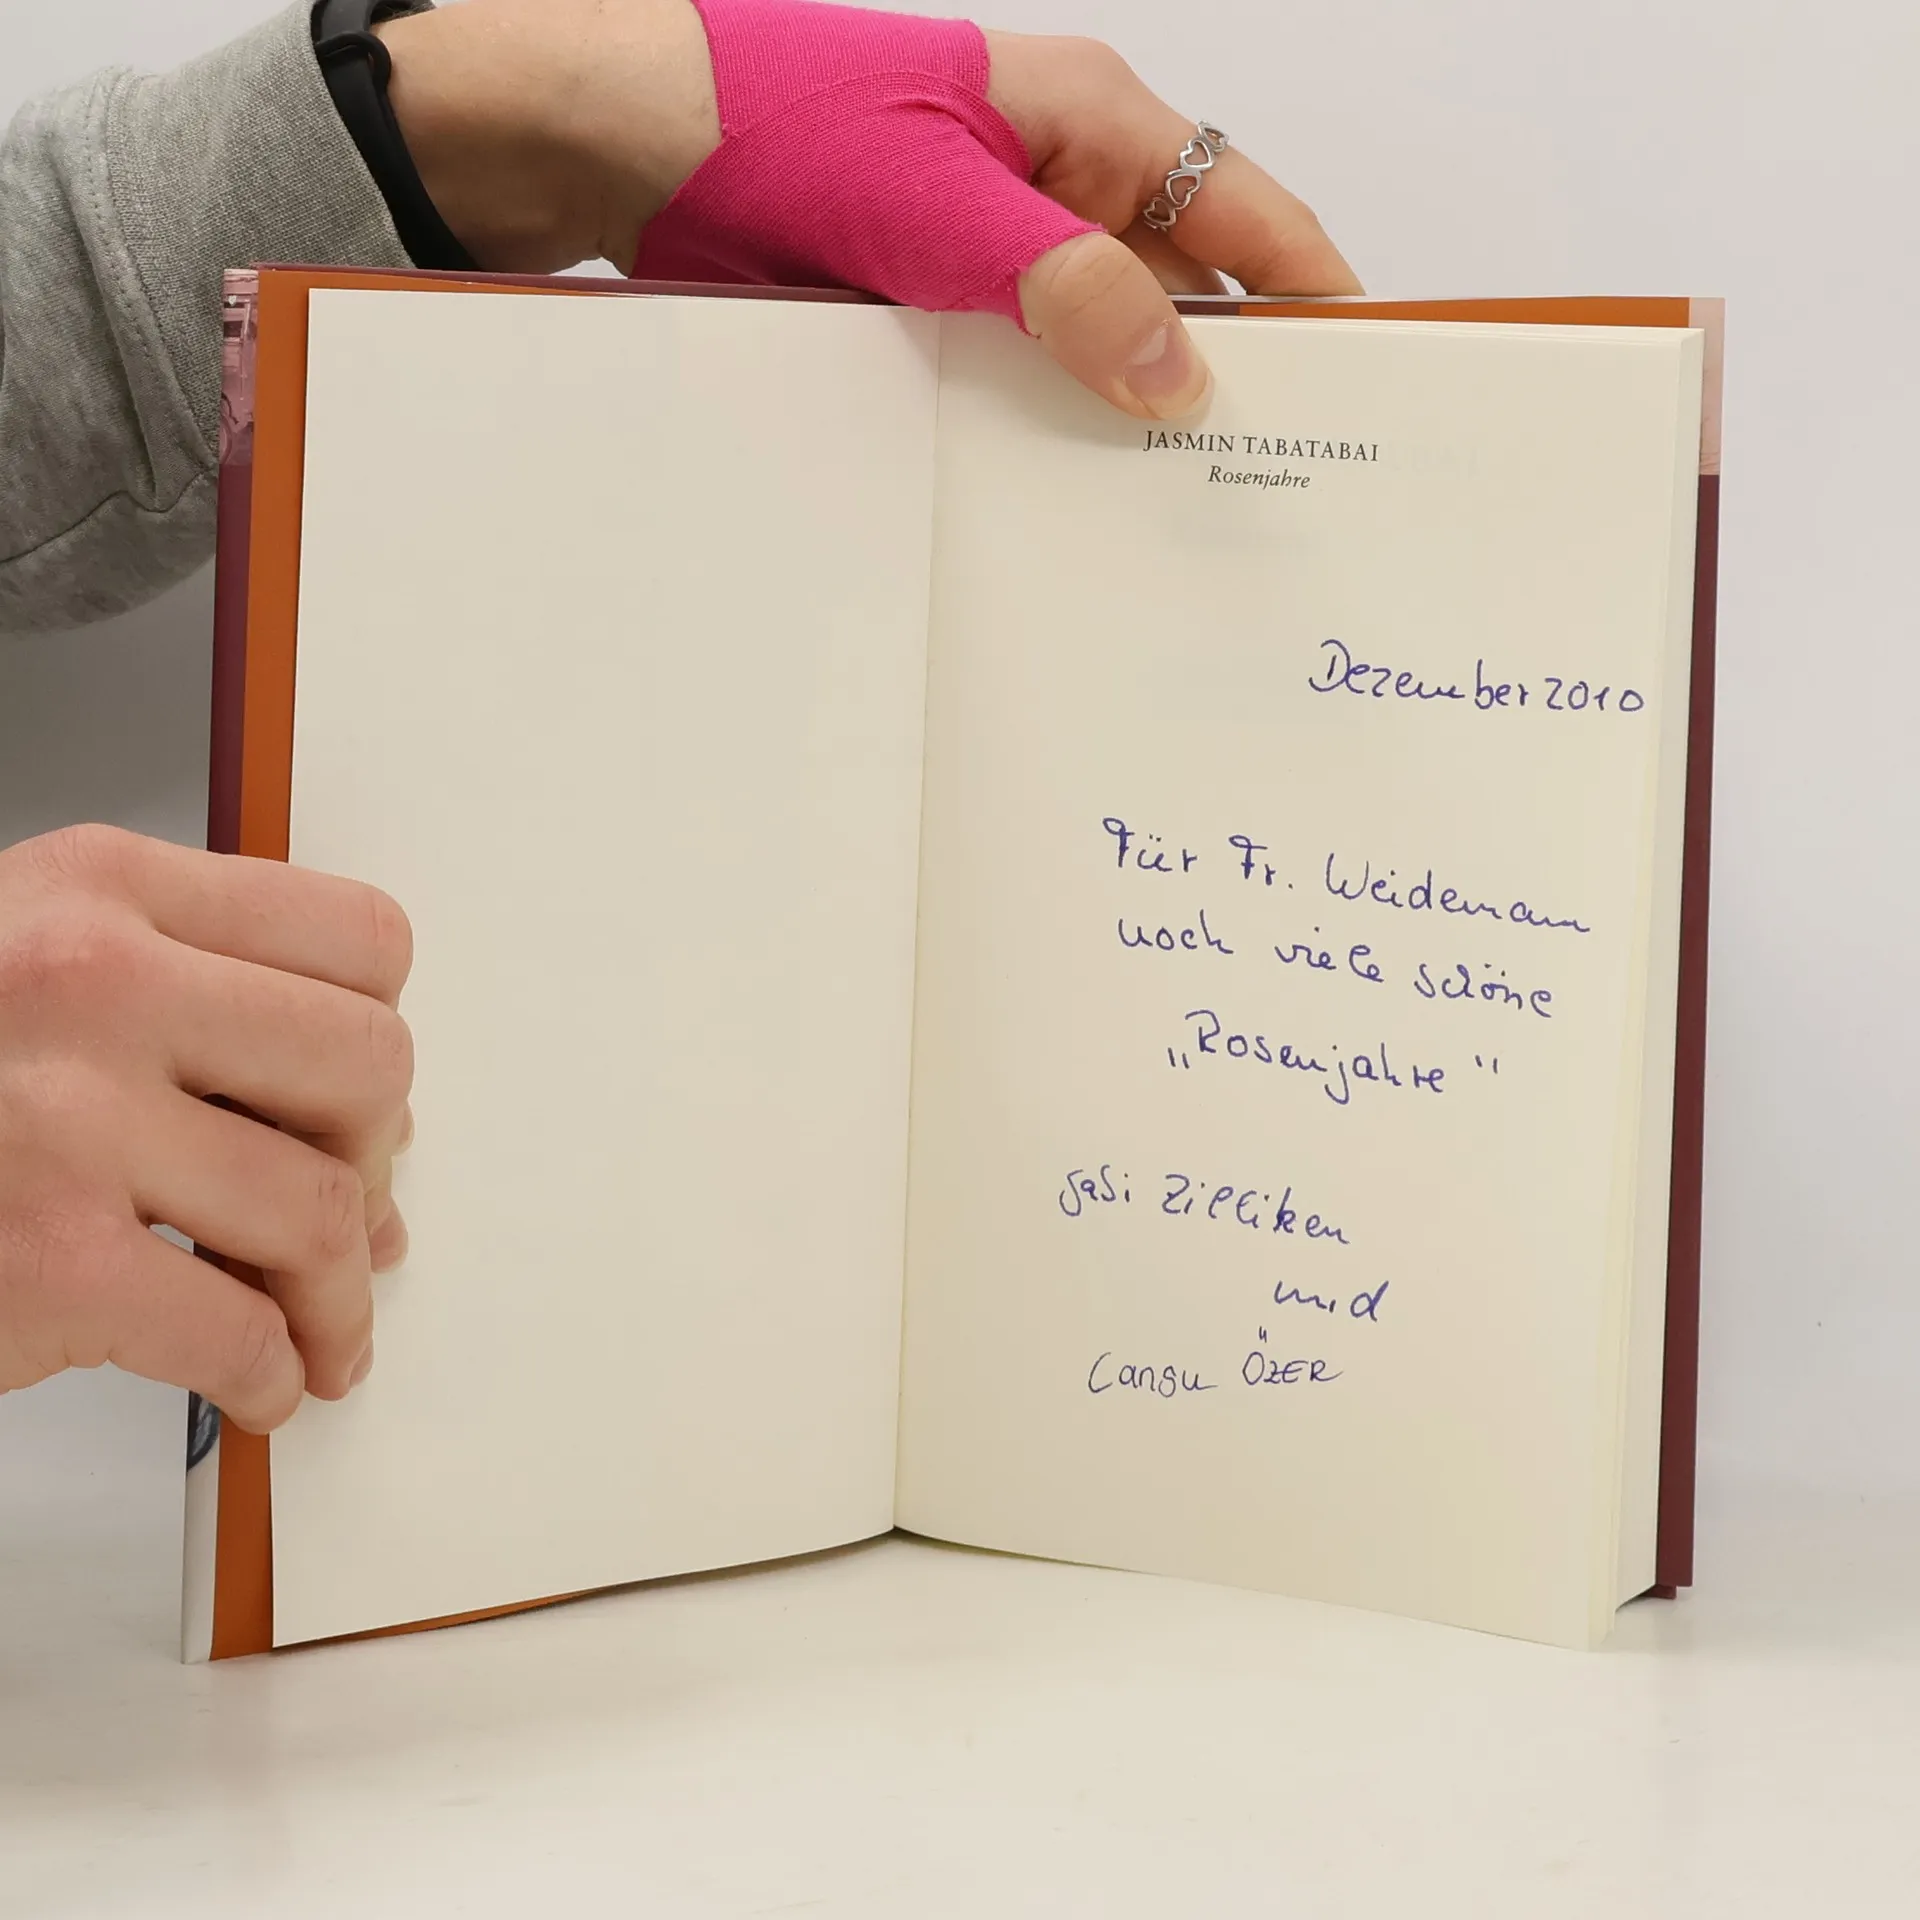 JASMIN TABATABAI
Rosenjahre
Dezember 2010
Für Fr. Weidemann
noch viele schöne
„Rosenjahre"
Gabi Zilliken
und
Cansu ÖZER